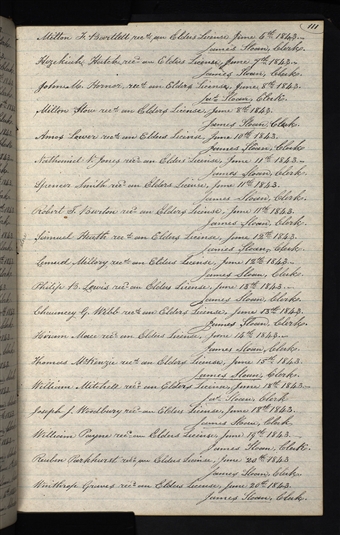 111
Milton F. Bartlett rec.d an Elders License June 6th 1843.
James Sloan, Clerk.
Hezekiah Hatch rec.d an Elders License, June 7th 1843.
James Sloan, Clerk.
John M. Horner, rec.d an Elders License, June 8th 1843.
Jas. Sloan, Clerk.
Milton Stow rec.d an Elders License, June 8th 1843.
James Sloan, Clerk
Amos Lower rec.d an Elders License, June 10th 1843.
James Sloan, Clerk.
Nathaniel K. Jones rec.d an Elders License, June 11th 1843.
James Sloan, Clerk.
Spencer Smith rec.d an Elders License, June 11th 1843.
James Sloan, Clerk.
Robert T. Burton rec.d an Elders License, June 11th 1843.
James Sloan, Clerk.
Samuel Heath rec.d an Elders License, June 12th 1843.
James Sloan, Clerk.
Lemuel Mallory rec.d an Elders License, June 12th 1843.
James Sloan, Clerk
Philip B. Lewis rec.d an Elders License, June 13th 1843.
James Sloan, Clerk.
Chauncey G. Webb rec.d an Elders License, June 13th 1843.
James Sloan, Clerk.
Hiram Mace rec.d an Elders License, June 14th 1843.
James Sloan, Clerk.
Thomas McKenzie rec.d an Elders License, June 15th 1843.
James Sloan, Clerk.
William Mitchell rec.d an Elders License, June 18th 1843.
Jas. Sloan, Clerk.
Joseph J. Woodbury rec.d an Elders License, June 18th 1843.
James Sloan, Clerk.
William Payne rec.d an Elders License, June 19th 1843.
James Sloan, Clerk.
Reuben Parkhurst rec.d an Elders License, June 20th 1843
James Sloan, Clerk.
Winthrop Graves rec.d an Elders License, June 20th 1843.
James Sloan, Clerk.